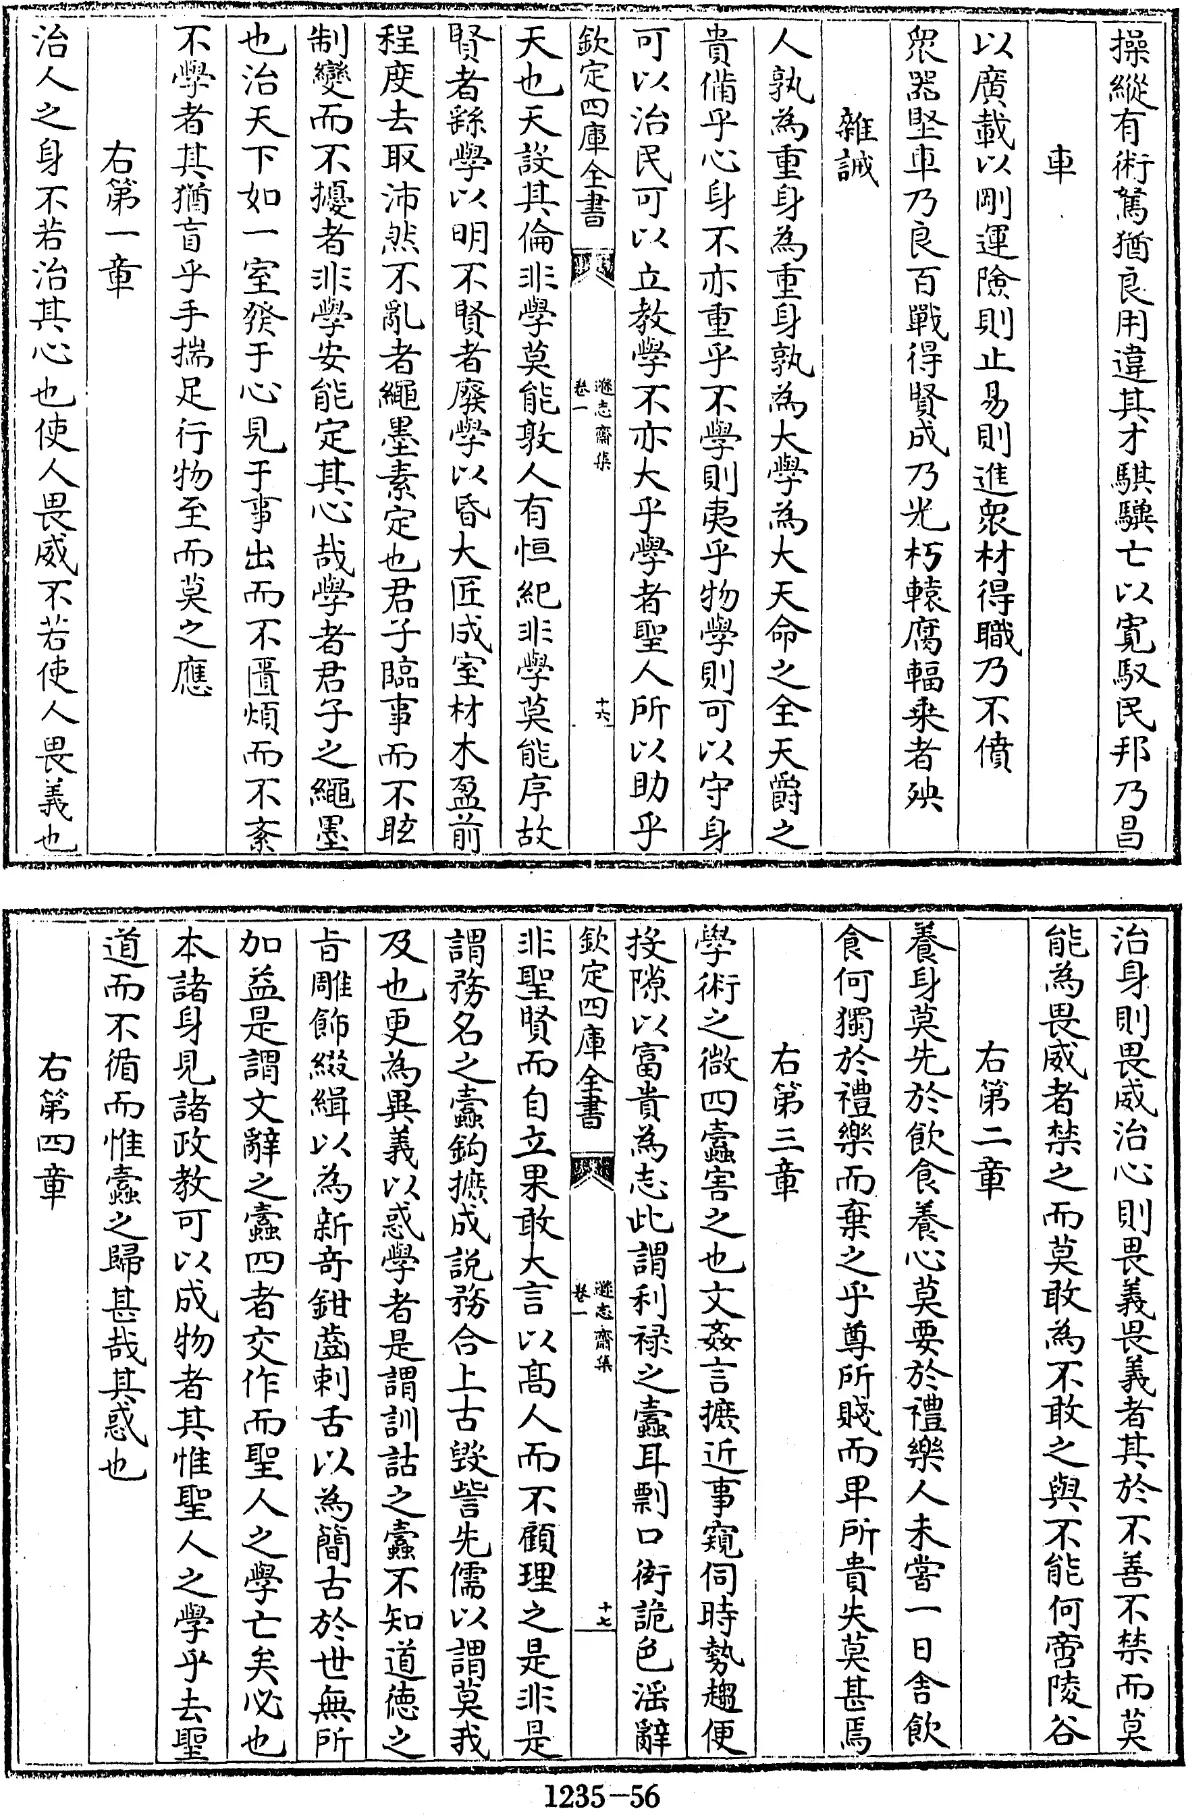 操縱有術駑猶良用違其才騏驥亡以寛馭民邦乃昌
車
以廣載以剛運險則止易則進衆材得職乃不僨
衆器堅車乃良百戰得賢成乃光朽轅腐輻乗者殃
雜誡
人孰為重身為重身孰為大學為大天命之全天爵之
貴備乎心身不亦重乎不學則夷乎物學則可以守身
可以治民可以立教學不亦大乎學者聖人所以助乎
欽定四庫全書
遜志齋集
卷一
十六
天也天設其倫非學莫能敦人有恒紀非學莫能序故
賢者繇學以明不賢者廢學以昏大匠成室材木盈前
程度去取沛然不亂者繩墨素定也君子臨事而不眩
制變而不擾者非學安能定其心哉學者君子之繩墨
也治天下如一室發于心見于事出而不匱煩而不紊
不學者其猶盲乎手揣足行物至而莫之應
右第一章
治人之身不若治其心也使人畏威不若使人畏義也
治身則畏威治心則畏義畏義者其於不善不禁而莫
能為畏威者禁之而莫敢為不敢之與不能何啻陵谷
右第二章
養身莫先於飲食養心莫要於禮樂人未嘗一日舍飲
食何獨於禮樂而棄之乎尊所賤而卑所貴失莫甚焉
右第三章
學術之微四蠧害之也文姦言摭近事窺伺時勢趨便
投隙以富貴為志此謂利禄之蠧耳剽口衒詭色淫辭
欽定四庫全書
遜志齋集
卷一
十七
非聖賢而自立果敢大言以高人而不顧理之是非是
謂務名之蠧鈎摭成說務合上古毀訾先儒以謂莫我
及也更為異義以惑學者是謂訓詁之蠧不知道徳之
旨雕飾綴緝以為新竒鉗齒剌舌以為簡古於世無所
加益是謂文辭之蠧四者交作而聖人之學亡矣必也
本諸身見諸政教可以成物者其惟聖人之學乎去聖
道而不循而惟蠧之歸甚哉其惑也
右第四章
1235—56